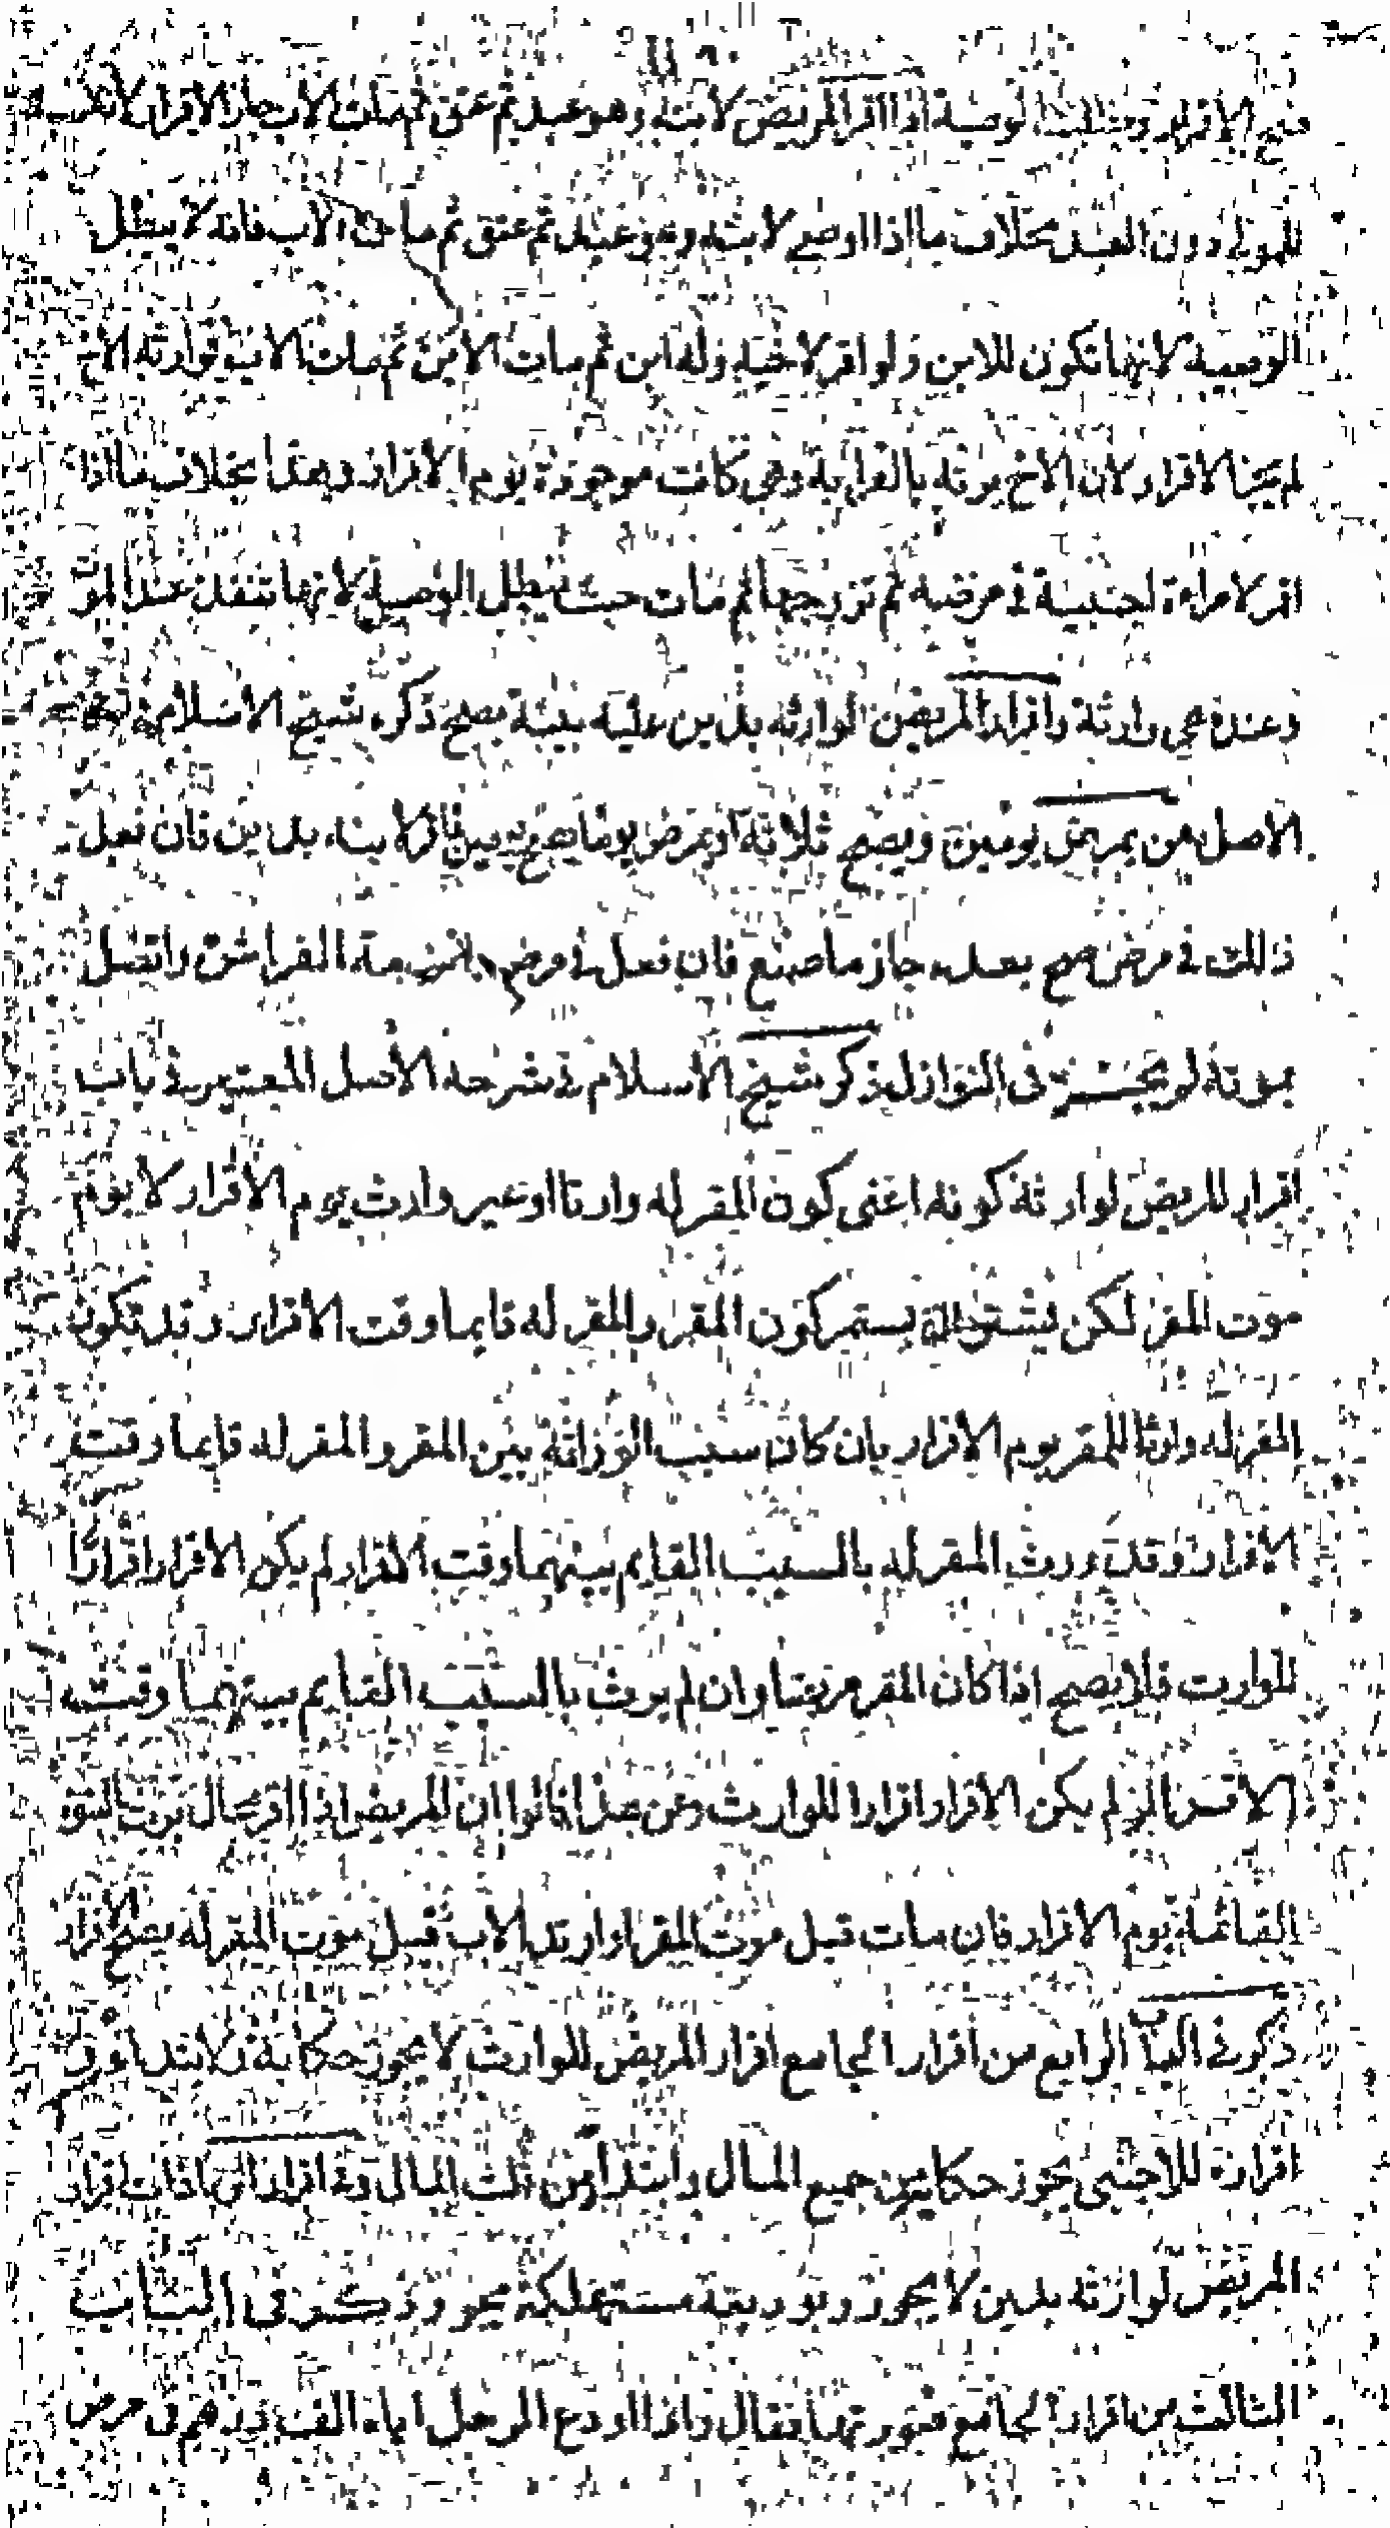 فيصح الاقرار وتبطل الوصية اذا اقر المريض لابنه وهو عبد ثم عتق ثم مات الاب جاز الاقرار لانه
للمولى دون العبد بخلاف ما اذا اوصى لابنه وهو عبد ثم عتق ثم مات الاب فانه لا يبطل
الوصية لانها تكون للابن ولو اقر لاخيه وله ابن ثم مات الابن ثم مات الاب فوارثه الاخ
لم يجز الاقرار لان الاخ يرثه بالقرابة وهي كانت موجودة يوم الاقرار وهذا بخلاف ما اذا
اقر لامراءة اجنبية في مرضه ثم تزوجها ثم مات حيث تبطل الوصية لانها تنفذ عند الموت
وعنده هي وارثة واقرار المريض لوارثه بدين عليه بينة يصح ذكره شيخ الاسلام في
الاصل من يمرض يومين ويصح ثلاثة او يمرض يوما يصح يومين فاقر لابنه بدين فان فعل
ذلك في مرض صح بعده جاز ما صنع فان فعل في مرض الفراش واتصل
بموته لو يجز في النوازل ذكر شيخ الاسلام في شرحه الاصل المعتبر في باب
اقرار المريض لوارثه كونه اعنى كون المقر له وارثا او غير وارث يوم الاقرار لا يوم
موت المقر لكن يستمر كون المقر والمقر له قايما وقت الاقرار وقد تكون
المقر له وارثا للمقر يوم الاقرار بان كان سبب الوراثة بين المقر والمقر له قايما وقت
الاقرار وقد ورث المقر له بالسبب القايم بينهما وقت الاقرار لم يكن الاقرار اقرارا
للوارث فلا يصح اذا كان المقر مريضا وان لم يرث بالسبب القايم بينهما وقت
الاقرار لم يكن الاقرار اقرارا للوارث وعن هذا قالوا ان المريض اذا اقر بالبنوة
القائمة يوم الاقرار فان مات قبل موت المقر او ارتد الاب قبل موت المقر له يصح الاقرار
ذكر في الباب الرابع من اقرار الجامع اقرار المريض للوارث لا يجوز حكاية ولا ابتداء وفي
اقراره للاجنبي يجوز حكاية من جميع المال وابتداء من ثلث المال وفي اقرار اقرار
المريض لوارثه بدين لا يجوز وبوديعة مستهلكة يجوز وذكر في الباب
الثالث من اقرار الجامع فقال واذا اودع الرجل اباه الف درهم في مرض